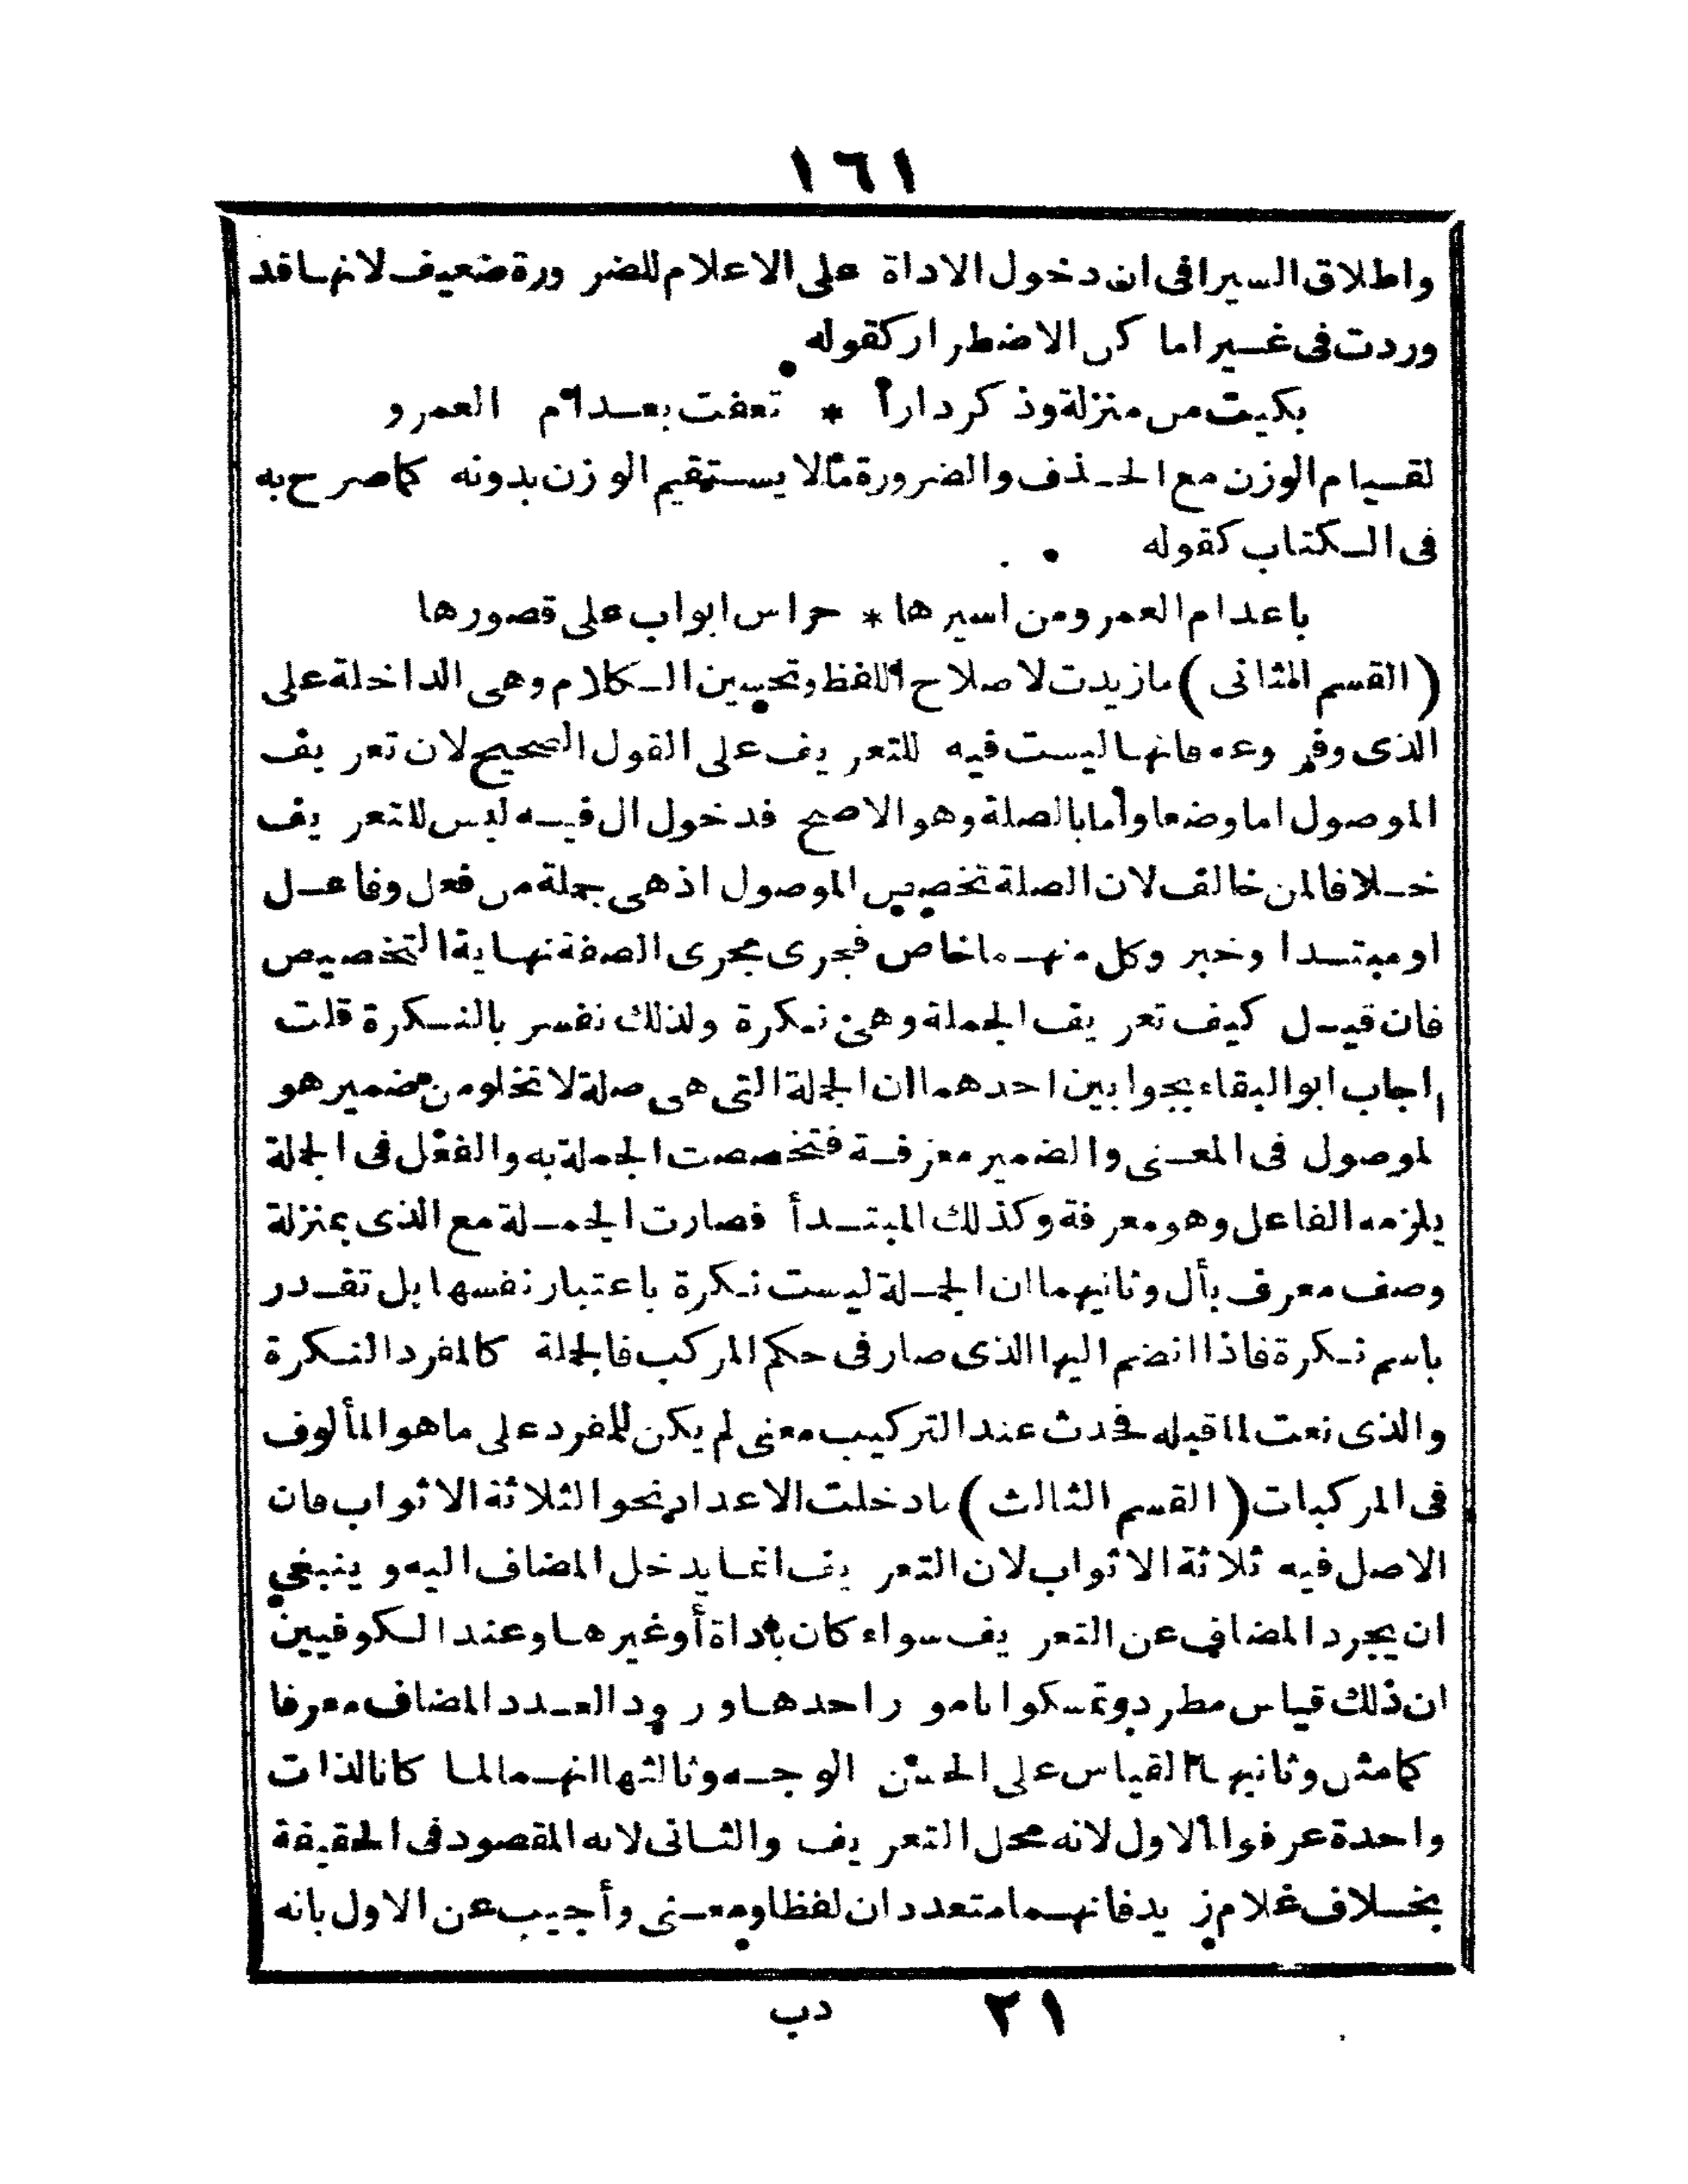 ١٦١
واطلاق السيرافى ان دخول الاداة على الاعلام للضرورة ضعيف لانها قد
وردت فى غير اماكن الاضطرار كقوله
بكيت من منزلة وذكر دارا * تعفت بعد ام العمرو
لقيام الوزن مع الحذف والضرورة مالا يستقيم الوزن بدونه كما صرح به
فى الكتاب كقوله
باعد ام العمرو من اسيرها * حراس ابواب على قصورها
(القسم الثانى) ما زيدت لاصلاح اللفظ وتحسين الكلام وهى الداخلة على
الذى وفروعه فانها ليست فيه للتعريف على القول الصحيح لان تعريف
الموصول اما وضعا واما بالصلة وهو الاصح فدخول ال فيه ليس للتعريف
خلافا لمن خالف لان الصلة تخصيص الموصول اذ هى جملة من فعل وفاعل
او مبتدا وخبر وكل منهما خاص فجرى مجرى الصفة نهاية التخصيص
فان قيل كيف تعريف الجملة وهى نكرة ولذلك نفسر بالنكرة قلت
اجاب ابو البقاء بجوابين احدهما ان الجملة التى هى صلة لا تخلو من ضمير هو
لموصول فى المعنى والضمير معرفة فتخصصت الجملة به والفعل فى الجملة
يلزمه الفاعل وهو معرفة وكذلك المبتدأ فصارت الجملة مع الذى بمنزلة
وصف معرف بأل وثانيهما ان الجملة ليست نكرة باعتبار نفسها بل تقدر
باسم نكرة فاذا انضم اليها الذى صار فى حكم المركب فالجملة كالمفرد النكرة
والذى نعت لما قبله فحدث عند التركيب معنى لم يكن للمفرد على ما هو المألوف
فى المركبات (القسم الثالث) ما دخلت الاعداد نحو الثلاثة الاثواب فان
الاصل فيه ثلاثة الاثواب لان التعريف انما يدخل المضاف اليه وينبغى
ان يجرد المضاف عن التعريف سواء كان باداة أو غيرها وعند الكوفيين
ان ذلك قياس مطرد وتمسكوا بامور احدها ورود العدد المضاف معرفا
كما مثل وثانيها القياس على الحسن الوجه وثالثها انهما لما كانا لذات
واحدة عرفوا الاول لانه محل التعريف والثانى لانه المقصود فى الحقيقة
بخلاف غلام زيد فانهما متعددان لفظا ومعنى وأجيب عن الاول بانه
٢١ دب